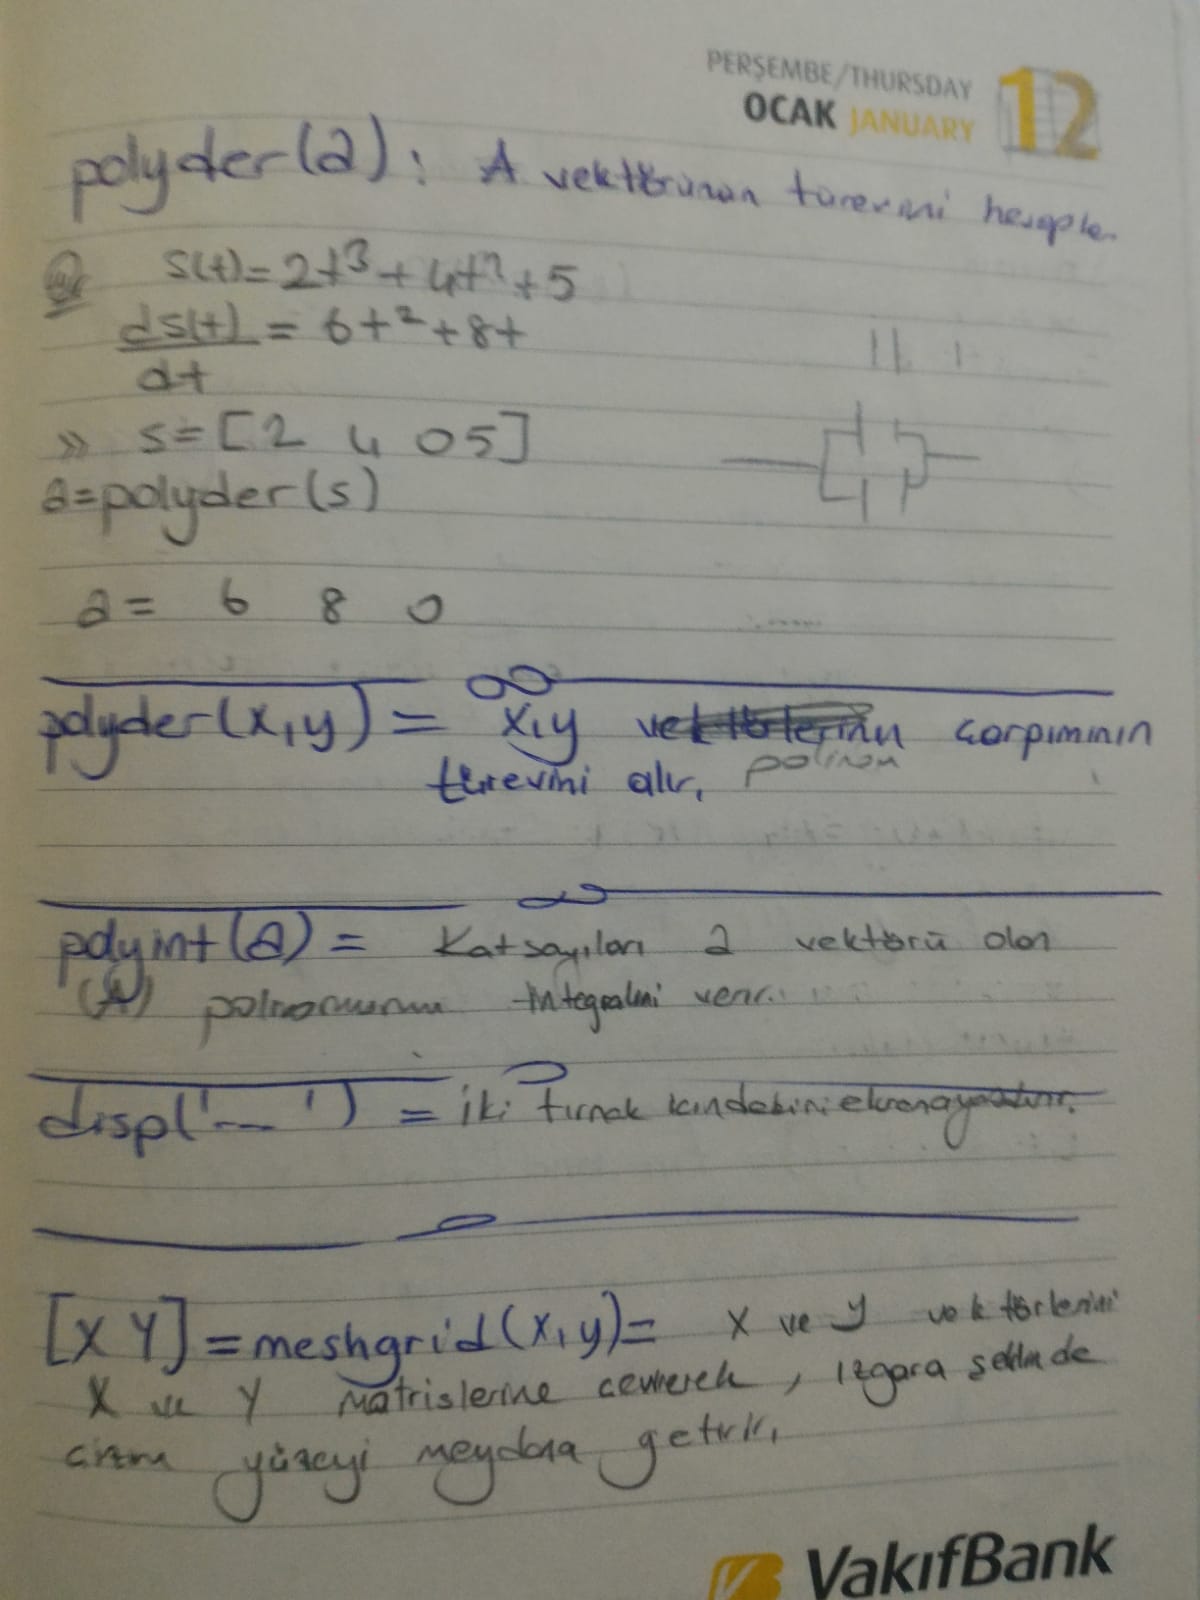 PERŞEMBE/THURSDAY
OCAK JANUARY 12
polyder(a): A vektörünün türevini hesaplar.
s(t)=2t³+4t²+5
ds(t)/dt = 6t²+8t
>> s=[2 4 0 5]
a=polyder(s)
a= 6 8 0
polyder(x,y) = x,y vektörlerinin çarpımının
türevini alır, polinom
polyint(a) = Katsayıları a vektörü olan
(A) polinomunun integralini verir.
disp('-- ') = iki tırnak içindekini ekrana yazdırır.
[X Y]=meshgrid(x,y)= x ve y vektörlerini
X ve Y matrislerine çevirerek, ızgara şeklinde
çizim yüzeyi meydana getirir,
VakıfBank